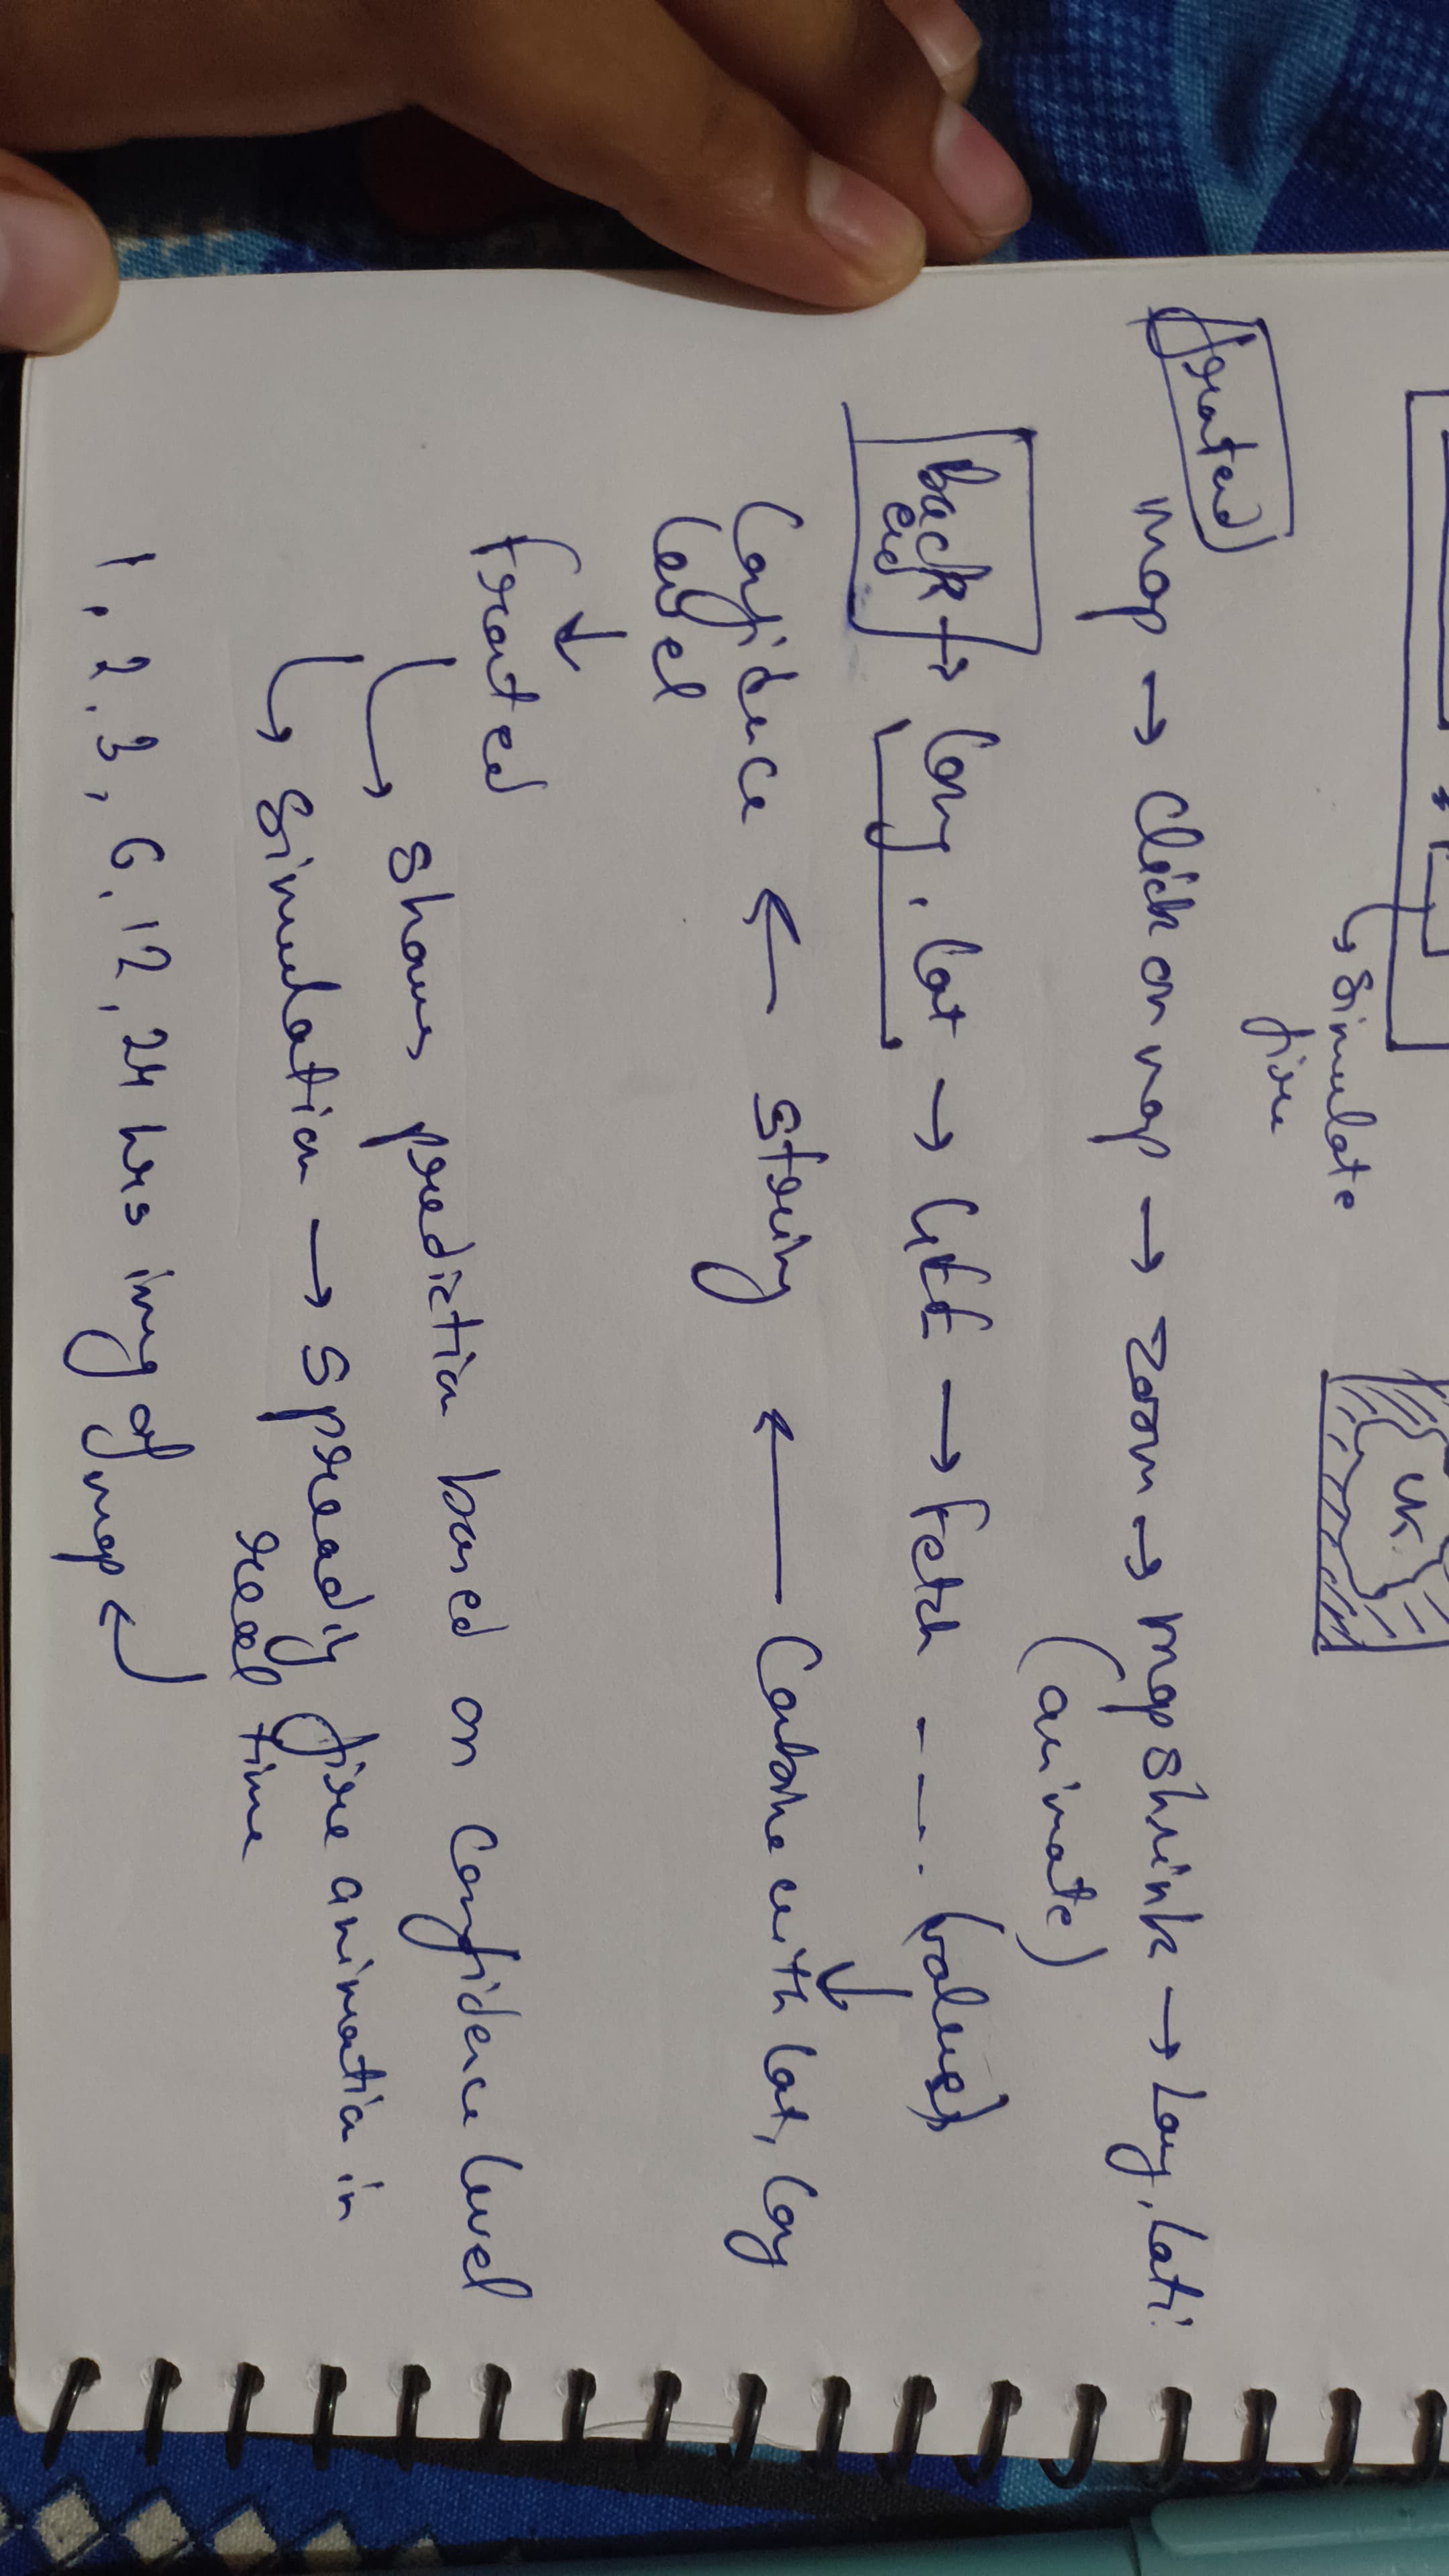 UK.
Simulate
fire
frontend
map → Click on map → zoom → map shrink → Long, Lati:
(animate)
Back
end → Long, Lat → GEE → Fetch ----- (values)
↓
Confidence ← string ← Combine with Lat, Long
level
↓
Frontend
↳ shows prediction based on confidence level
↳ simulation → spreading fire animation in
real time
1, 2, 3, 6, 12, 24 hrs img of map ↵